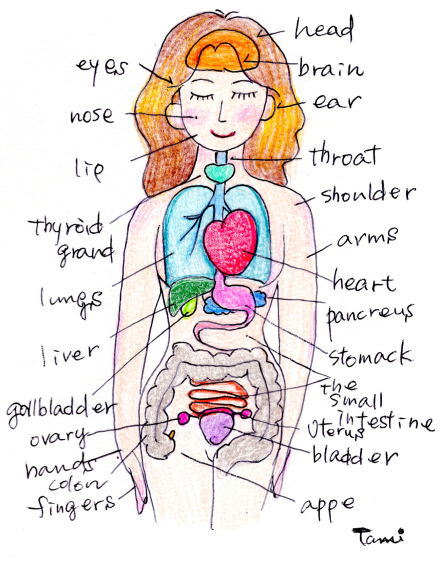 head
eyes
brain
nose
ear
lip
throat
shoulder
thyroid
grand
arms
lungs
heart
pancreus
liver
stomack
the
small
intestine
gallbladder
ovary
Uterus
bladder
hands
colon
fingers
appe
Tami